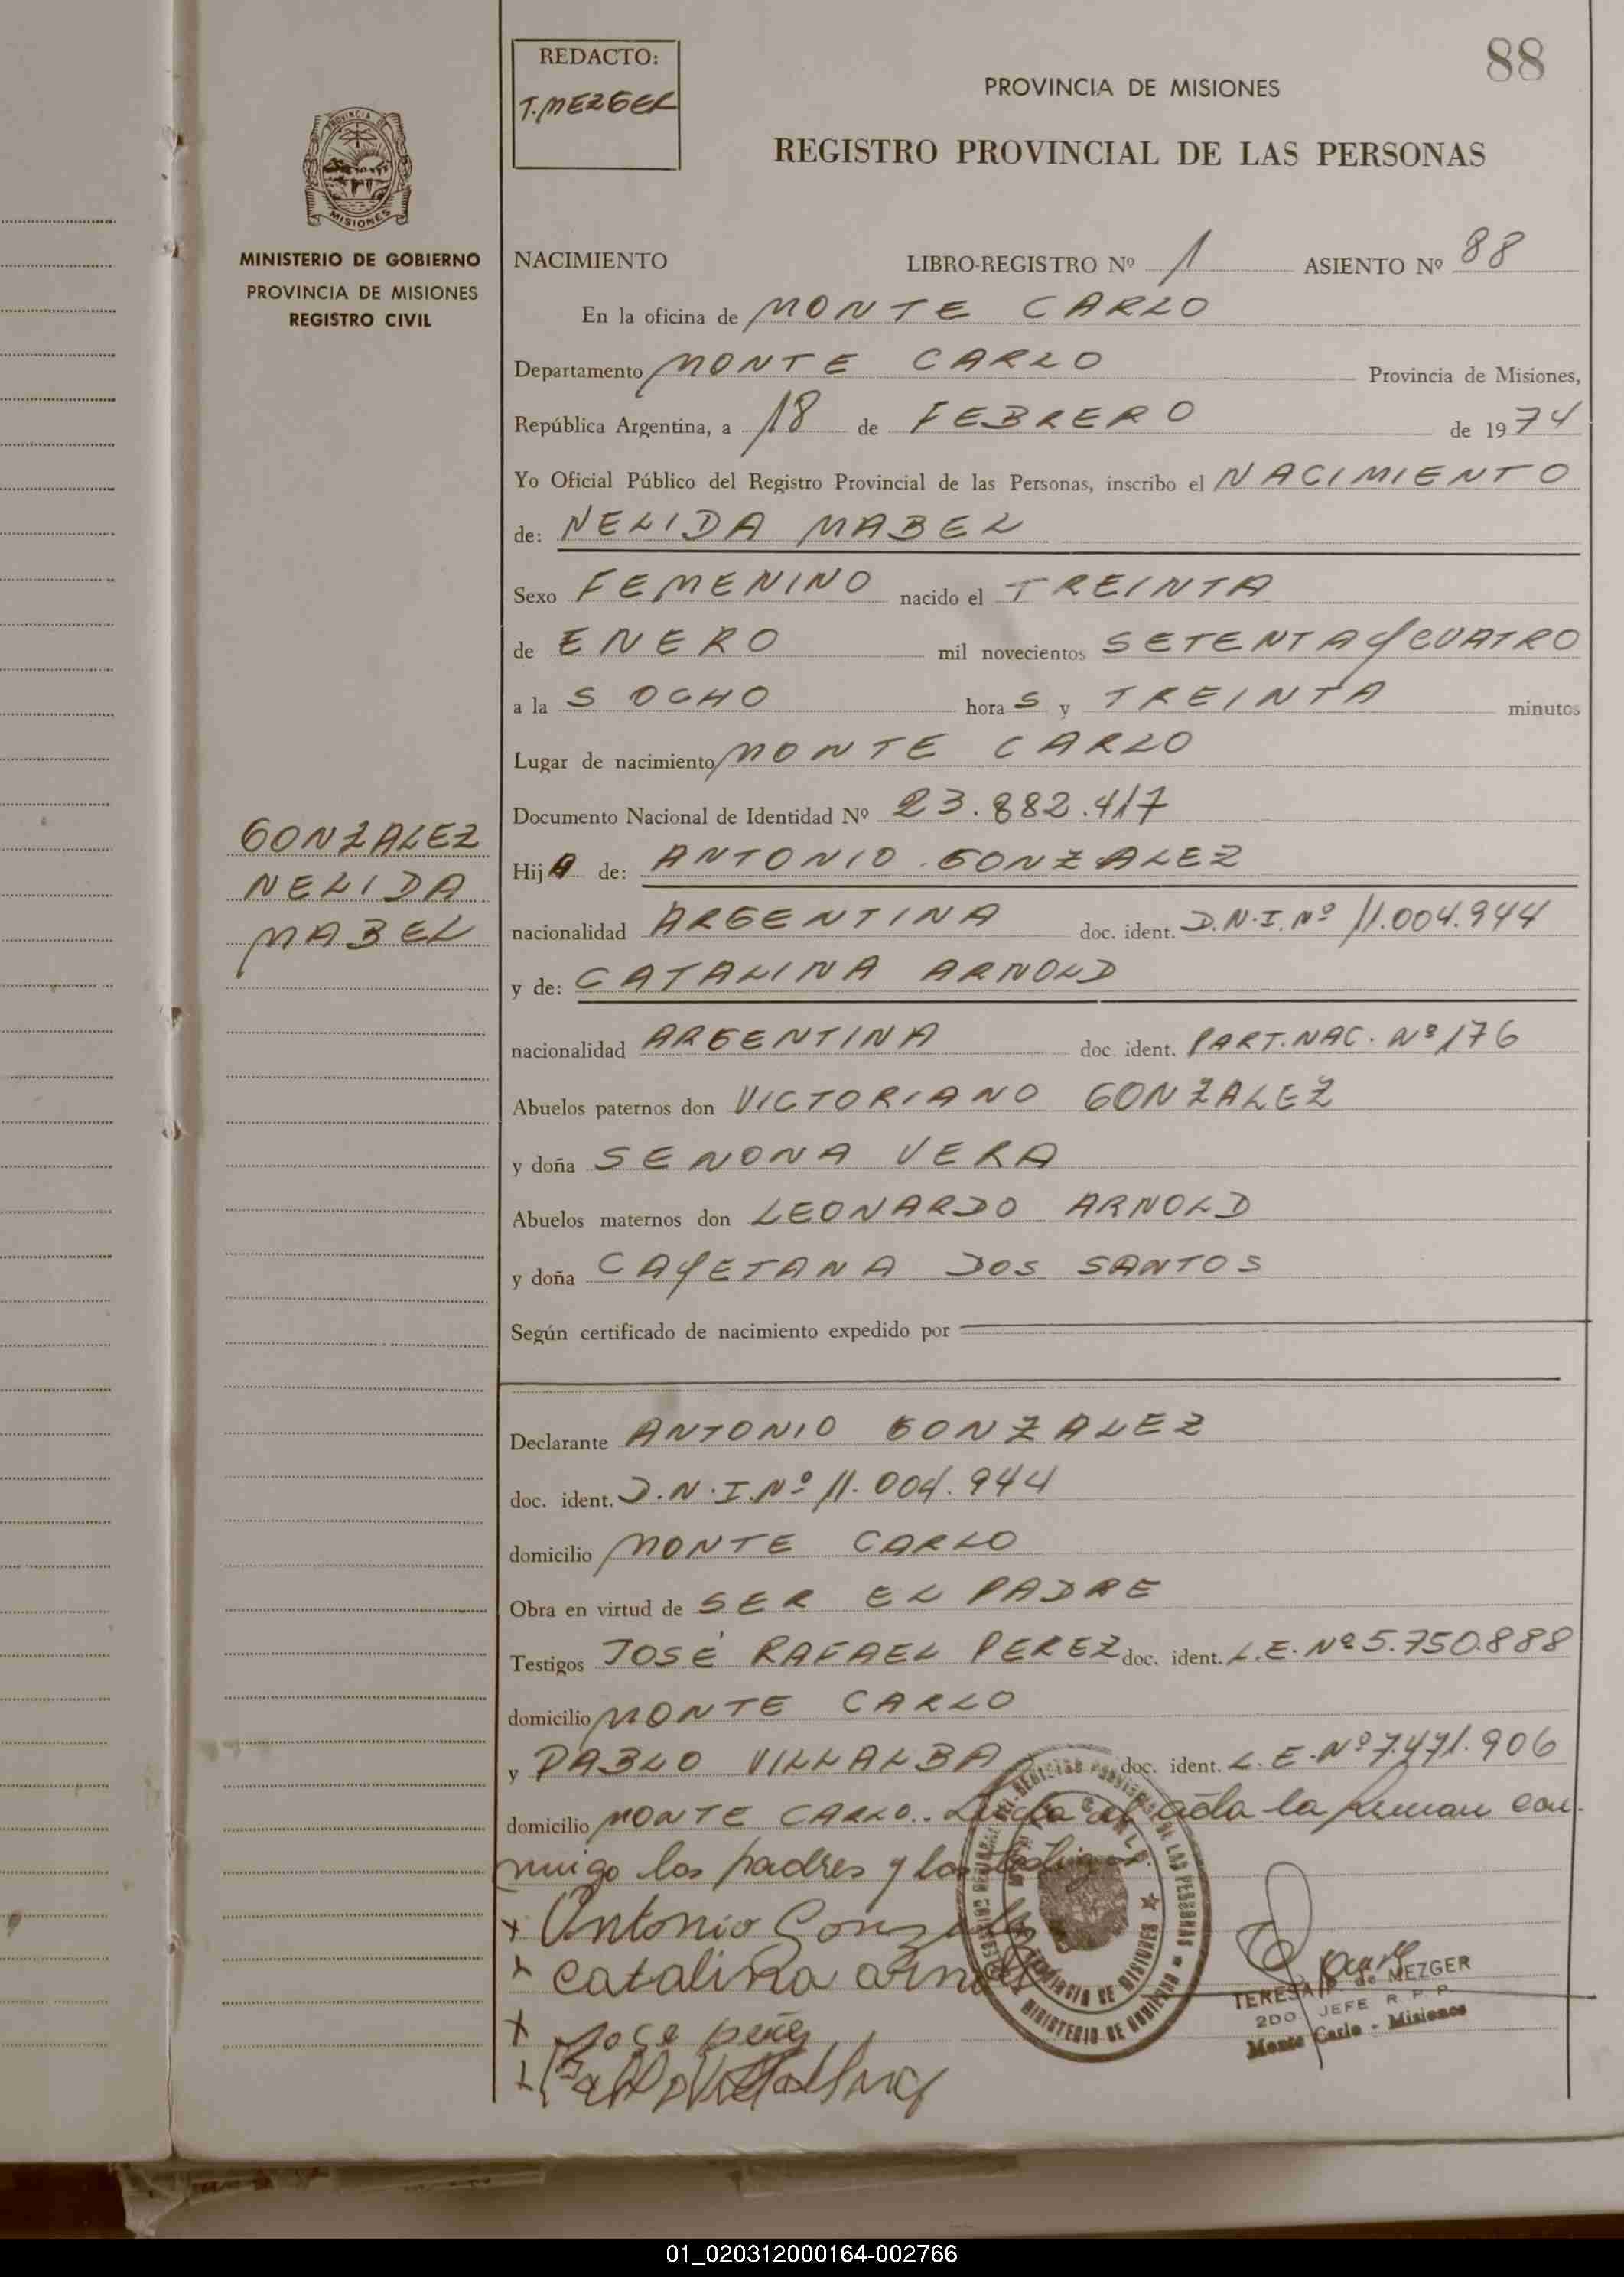 88
REDACTO:
T. MEZGER
PROVINCIA DE MISIONES
REGISTRO PROVINCIAL DE LAS PERSONAS
PROVINCIA DE
MISIONES
MINISTERIO DE GOBIERNO
PROVINCIA DE MISIONES
REGISTRO CIVIL
GONZALEZ
NELIDA
MABEL
NACIMIENTO LIBRO-REGISTRO Nº 1 ASIENTO Nº 88
En la oficina de MONTE CARLO
Departamento MONTE CARLO Provincia de Misiones,
República Argentina, a 18 de FEBRERO de 1974
Yo Oficial Público del Registro Provincial de las Personas, inscribo el NACIMIENTO
de: NELIDA MABEL
Sexo FEMENINO nacido el TREINTA
de ENERO mil novecientos SETENTA y CUATRO
a la S OCHO hora S y TREINTA minutos
Lugar de nacimiento MONTE CARLO
Documento Nacional de Identidad Nº 23.882.417
Hij A de: ANTONIO GONZALEZ
nacionalidad ARGENTINA doc. ident. D.N.I. Nº 11.004.944
y de: CATALINA ARNOLD
nacionalidad ARGENTINA doc. ident. PART. NAC. Nº 176
Abuelos paternos don VICTORIANO GONZALEZ
y doña SENONA VERA
Abuelos maternos don LEONARDO ARNOLD
y doña CAYETANA DOS SANTOS
Según certificado de nacimiento expedido por
Declarante ANTONIO GONZALEZ
doc. ident. D.N.I. Nº 11.004.944
domicilio MONTE CARLO
Obra en virtud de SER EL PADRE
Testigos JOSÉ RAFAEL PEREZ doc. ident. L.E. Nº 5.750.888
domicilio MONTE CARLO
y PABLO VILLALBA doc. ident. L.E. Nº 7.471.906
domicilio MONTE CARLO.. Leída el acta la firman con
migo los padres y los testigos
x Antonio Gonzalez
x Catalina Arnold
x Jose perez
x Pablo Villalba
PROVINCIA DE MISIONES
MINISTERIO DE GOBIERNO
TERESA de MEZGER
2DO JEFE R. P. P.
Monte Carlo - Misiones
01_020312000164-002766